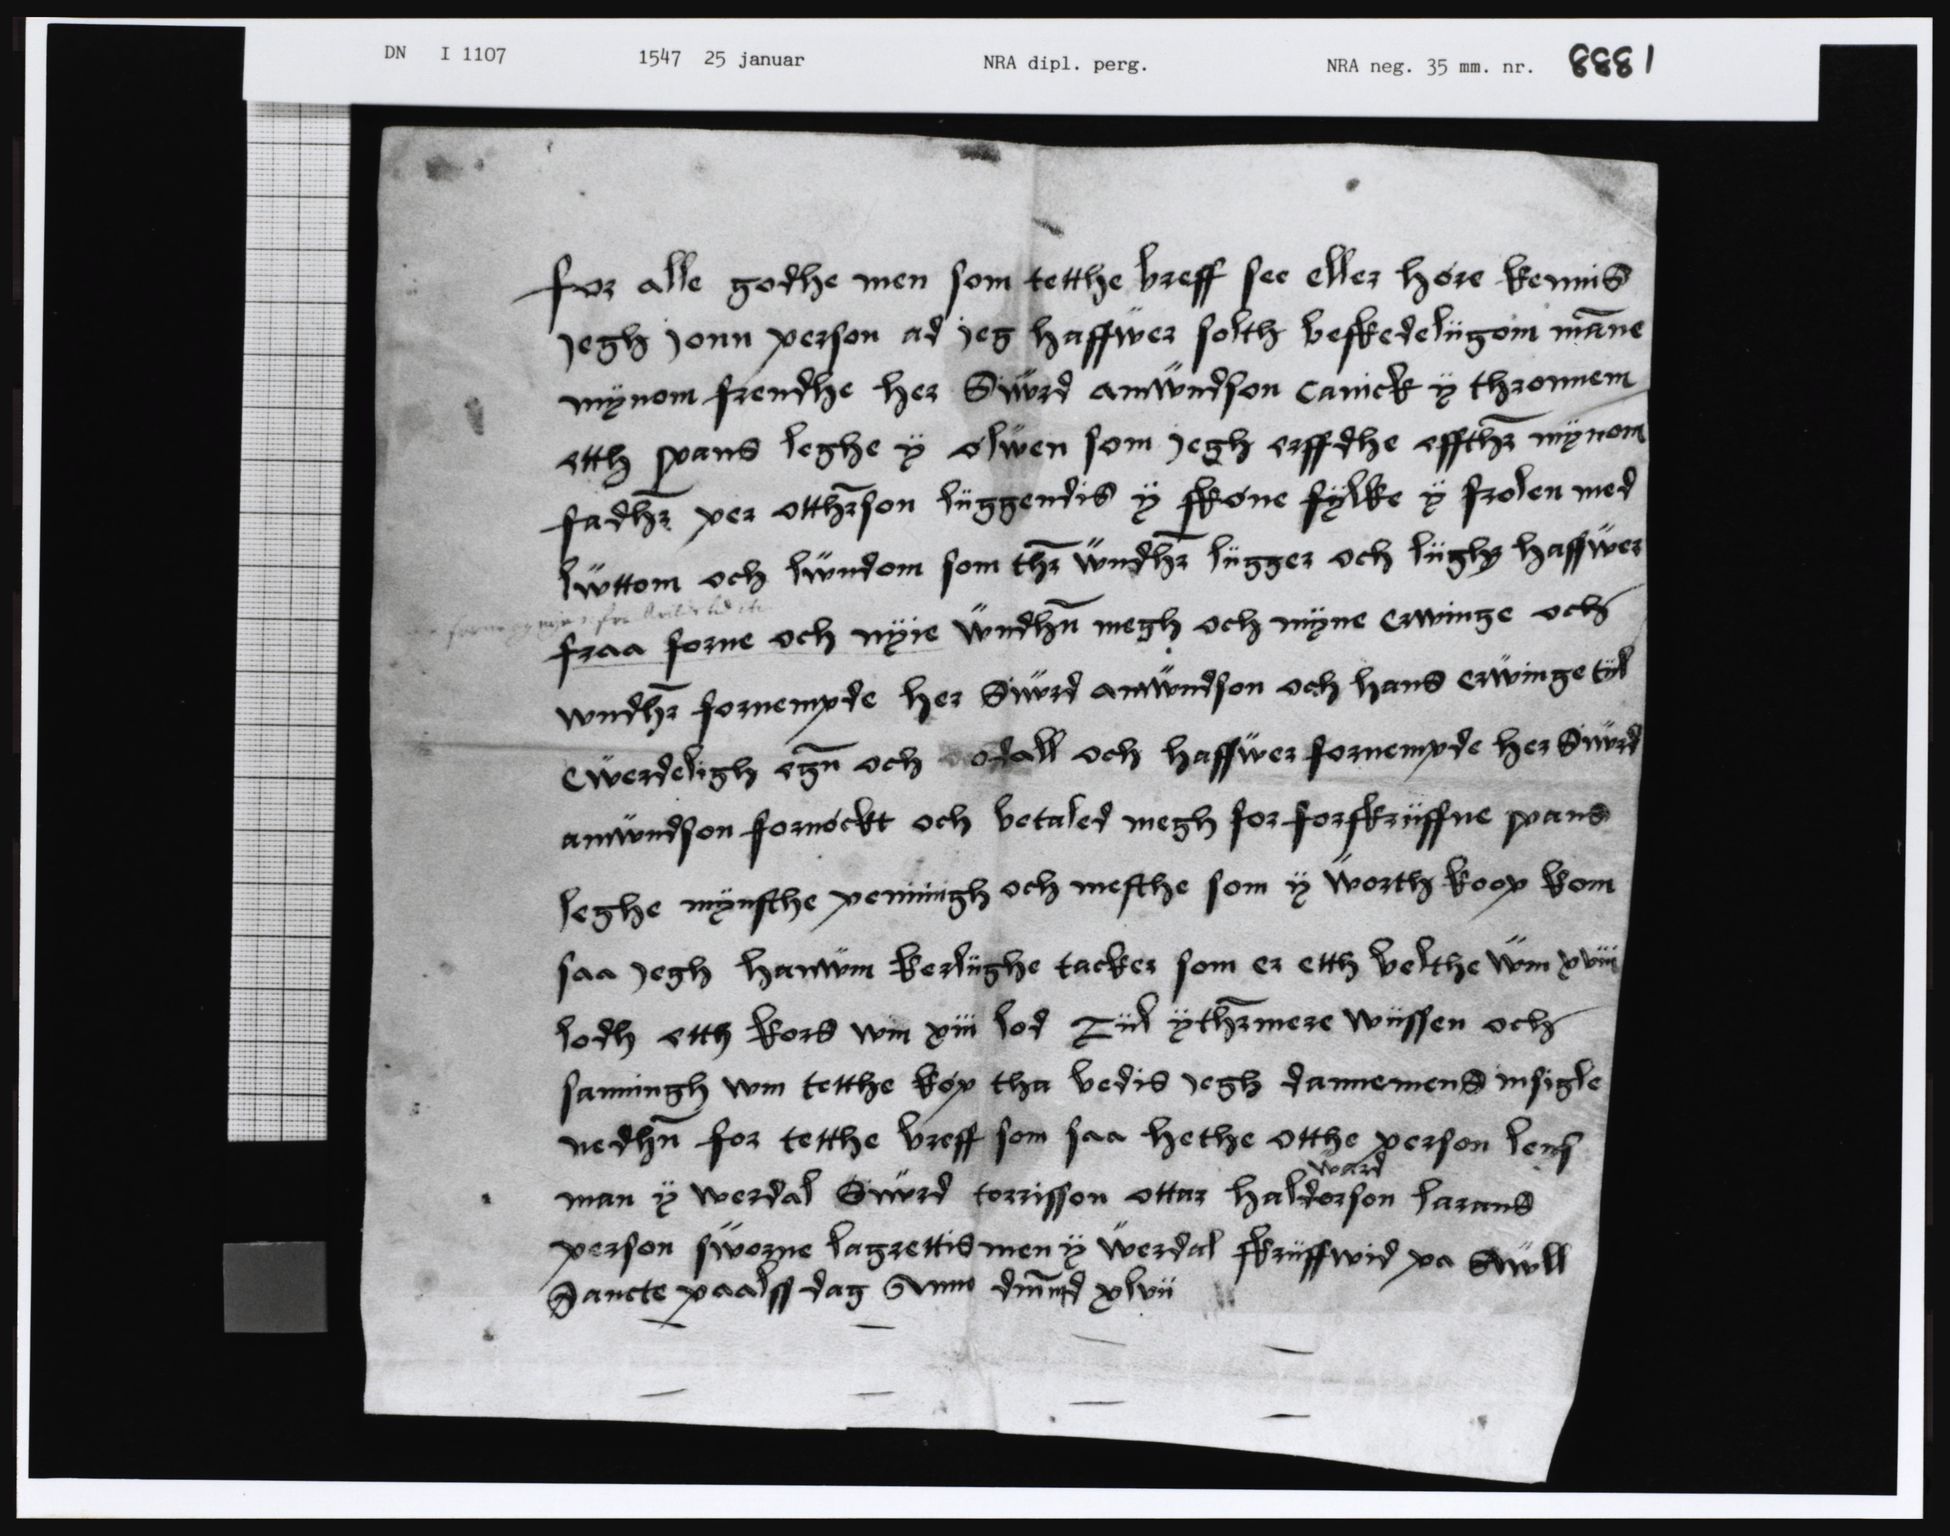 DN I 1107 1547 25 januar NRA dipl. perg. NRA neg. 35 mm. nr. 8881
for alle godhe men som tetthe breff see eller høre kennis
jegh jonn person ad jeg haffwer solth beskedeligom māne
mÿnom frendhe her Siwrd amwndson canick ÿ thronnem
etth spans leghe ÿ ølwen som jegh erffdhe effthr̄ mÿnom
fadhr̄ per otthr̄son liggendis ÿ skøne fÿlke ÿ frolen med
lwttom och lwndom som thr̄ wndhr̄ ligger och lighþ haffwer
fraa forne och nÿie wndhn̄ megh och mÿne erwinge och
wndhr̄ fornempde her Siwrd amwndson och hans erwinge til
ewerdeligh egn̄ och odall och haffwer fornempde her Siwrd
amwndson fornøckt och betaled megh for forskriffne spans
leghe mÿnsthe penningh och mesthe som ÿ worth koop kom
saa jegh hanwm kerlighe tacker som er etth belthe wm xviii
lodh etth kors wm xiii lod Til ÿthr̄mere wissen och
sanningh wm tetthe køp tha bedis jegh dannemens insigle
nedhn̄ for tetthe breff som saa hethe otthe person lens
man ÿ werdal Siwrd torrisson ottar haldorson larans
ward
person sworne lagrettis men ÿ werdal skriffwid pa Swll
Sancte paalss dag Anno dm̄ md xlvii